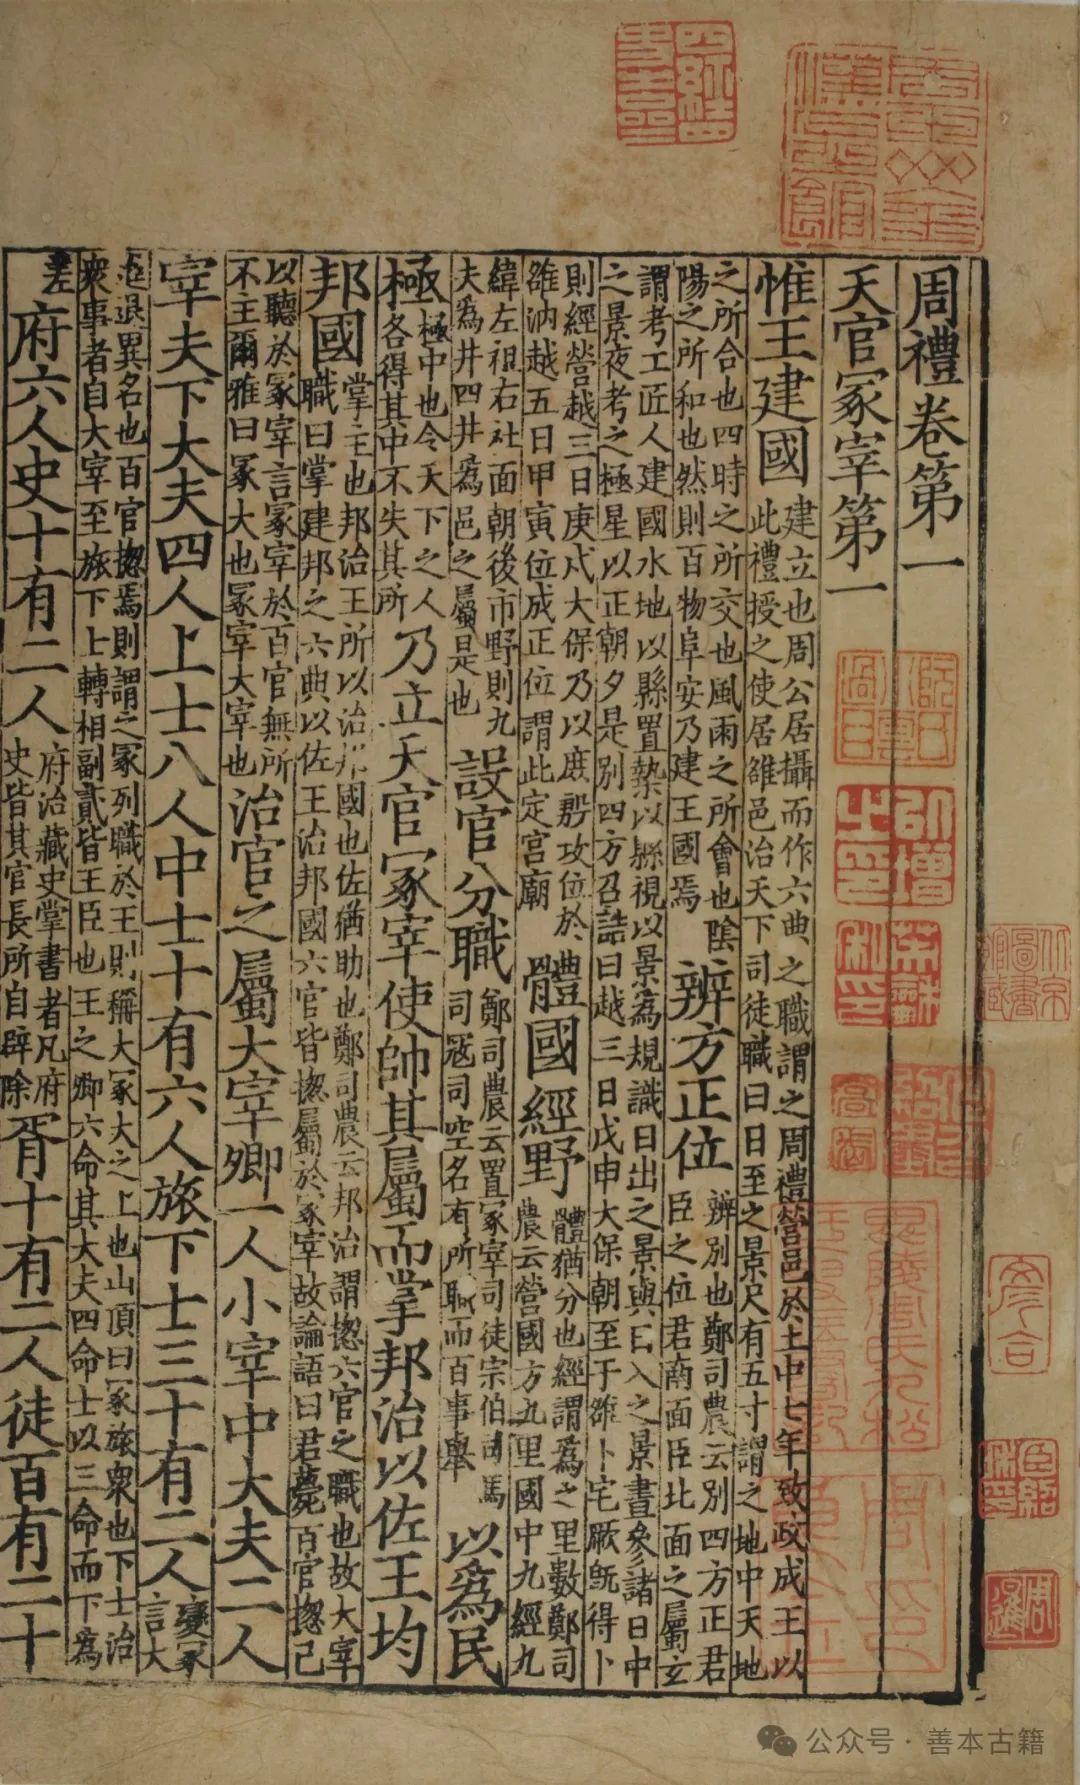 周禮卷第一
天官冢宰第一
惟王建國
建立也周公居攝而作六典之職謂之周禮營邑於土中七年致政成王以
此禮授之使居雒邑治天下司徒職曰日至之景尺有五寸謂之地中天地
之所合也四時之所交也風雨之所會也陰
陽之所和也然則百物阜安乃建王國焉
辨方正位
辨別也鄭司農云別四方正君
臣之位君南面臣北面之屬玄
謂考工匠人建國水地以縣置槷以縣視以景為規識日出之景與日入之景晝參諸日中
之景夜考之極星以正朝夕是別四方召誥曰越三日戊申大保朝至于雒卜宅厥既得卜
則經營越三日庚戌大保乃以庶殷攻位於
雒汭越五日甲寅位成正位謂此定宮廟
體國經野
體猶分也經謂為之里數鄭司
農云營國方九里國中九經九
緯左祖右社面朝後市野則九
夫爲井四井爲邑之屬是也
設官分職
鄭司農云置冢宰司徒宗伯司馬
司寇司空名有所職而百事舉
以爲民
極
極中也令天下之人
各得其中不失其所
乃立天官冢宰使帥其屬而掌邦治以佐王均
邦國
掌主也邦治王所以治邦國也佐猶助也鄭司農云邦治謂揔六官之職也故大宰
職曰掌建邦之六典以佐王治邦國六官皆揔屬於冢宰故論語曰君薨百官揔己
以聽於冢宰言冢宰於百官無所
不主爾雅曰冢大也冢宰大宰也
治官之屬大宰卿一人小宰中大夫二人
宰夫下大夫四人上士八人中士十有六人旅下士三十有二人
變冢
言大
進退異名也百官揔焉則謂之冢列職於王則稱大冢大之上也山頂曰冢旅衆也下士治
衆事者自大宰至旅下上轉相副貳皆王臣也王之卿六命其大夫四命士以三命而下為
差
府六人史十有二人
府治藏史掌書者凡府
史皆其官長所自辟除
胥十有二人徒百有二十
公众号·善本古籍